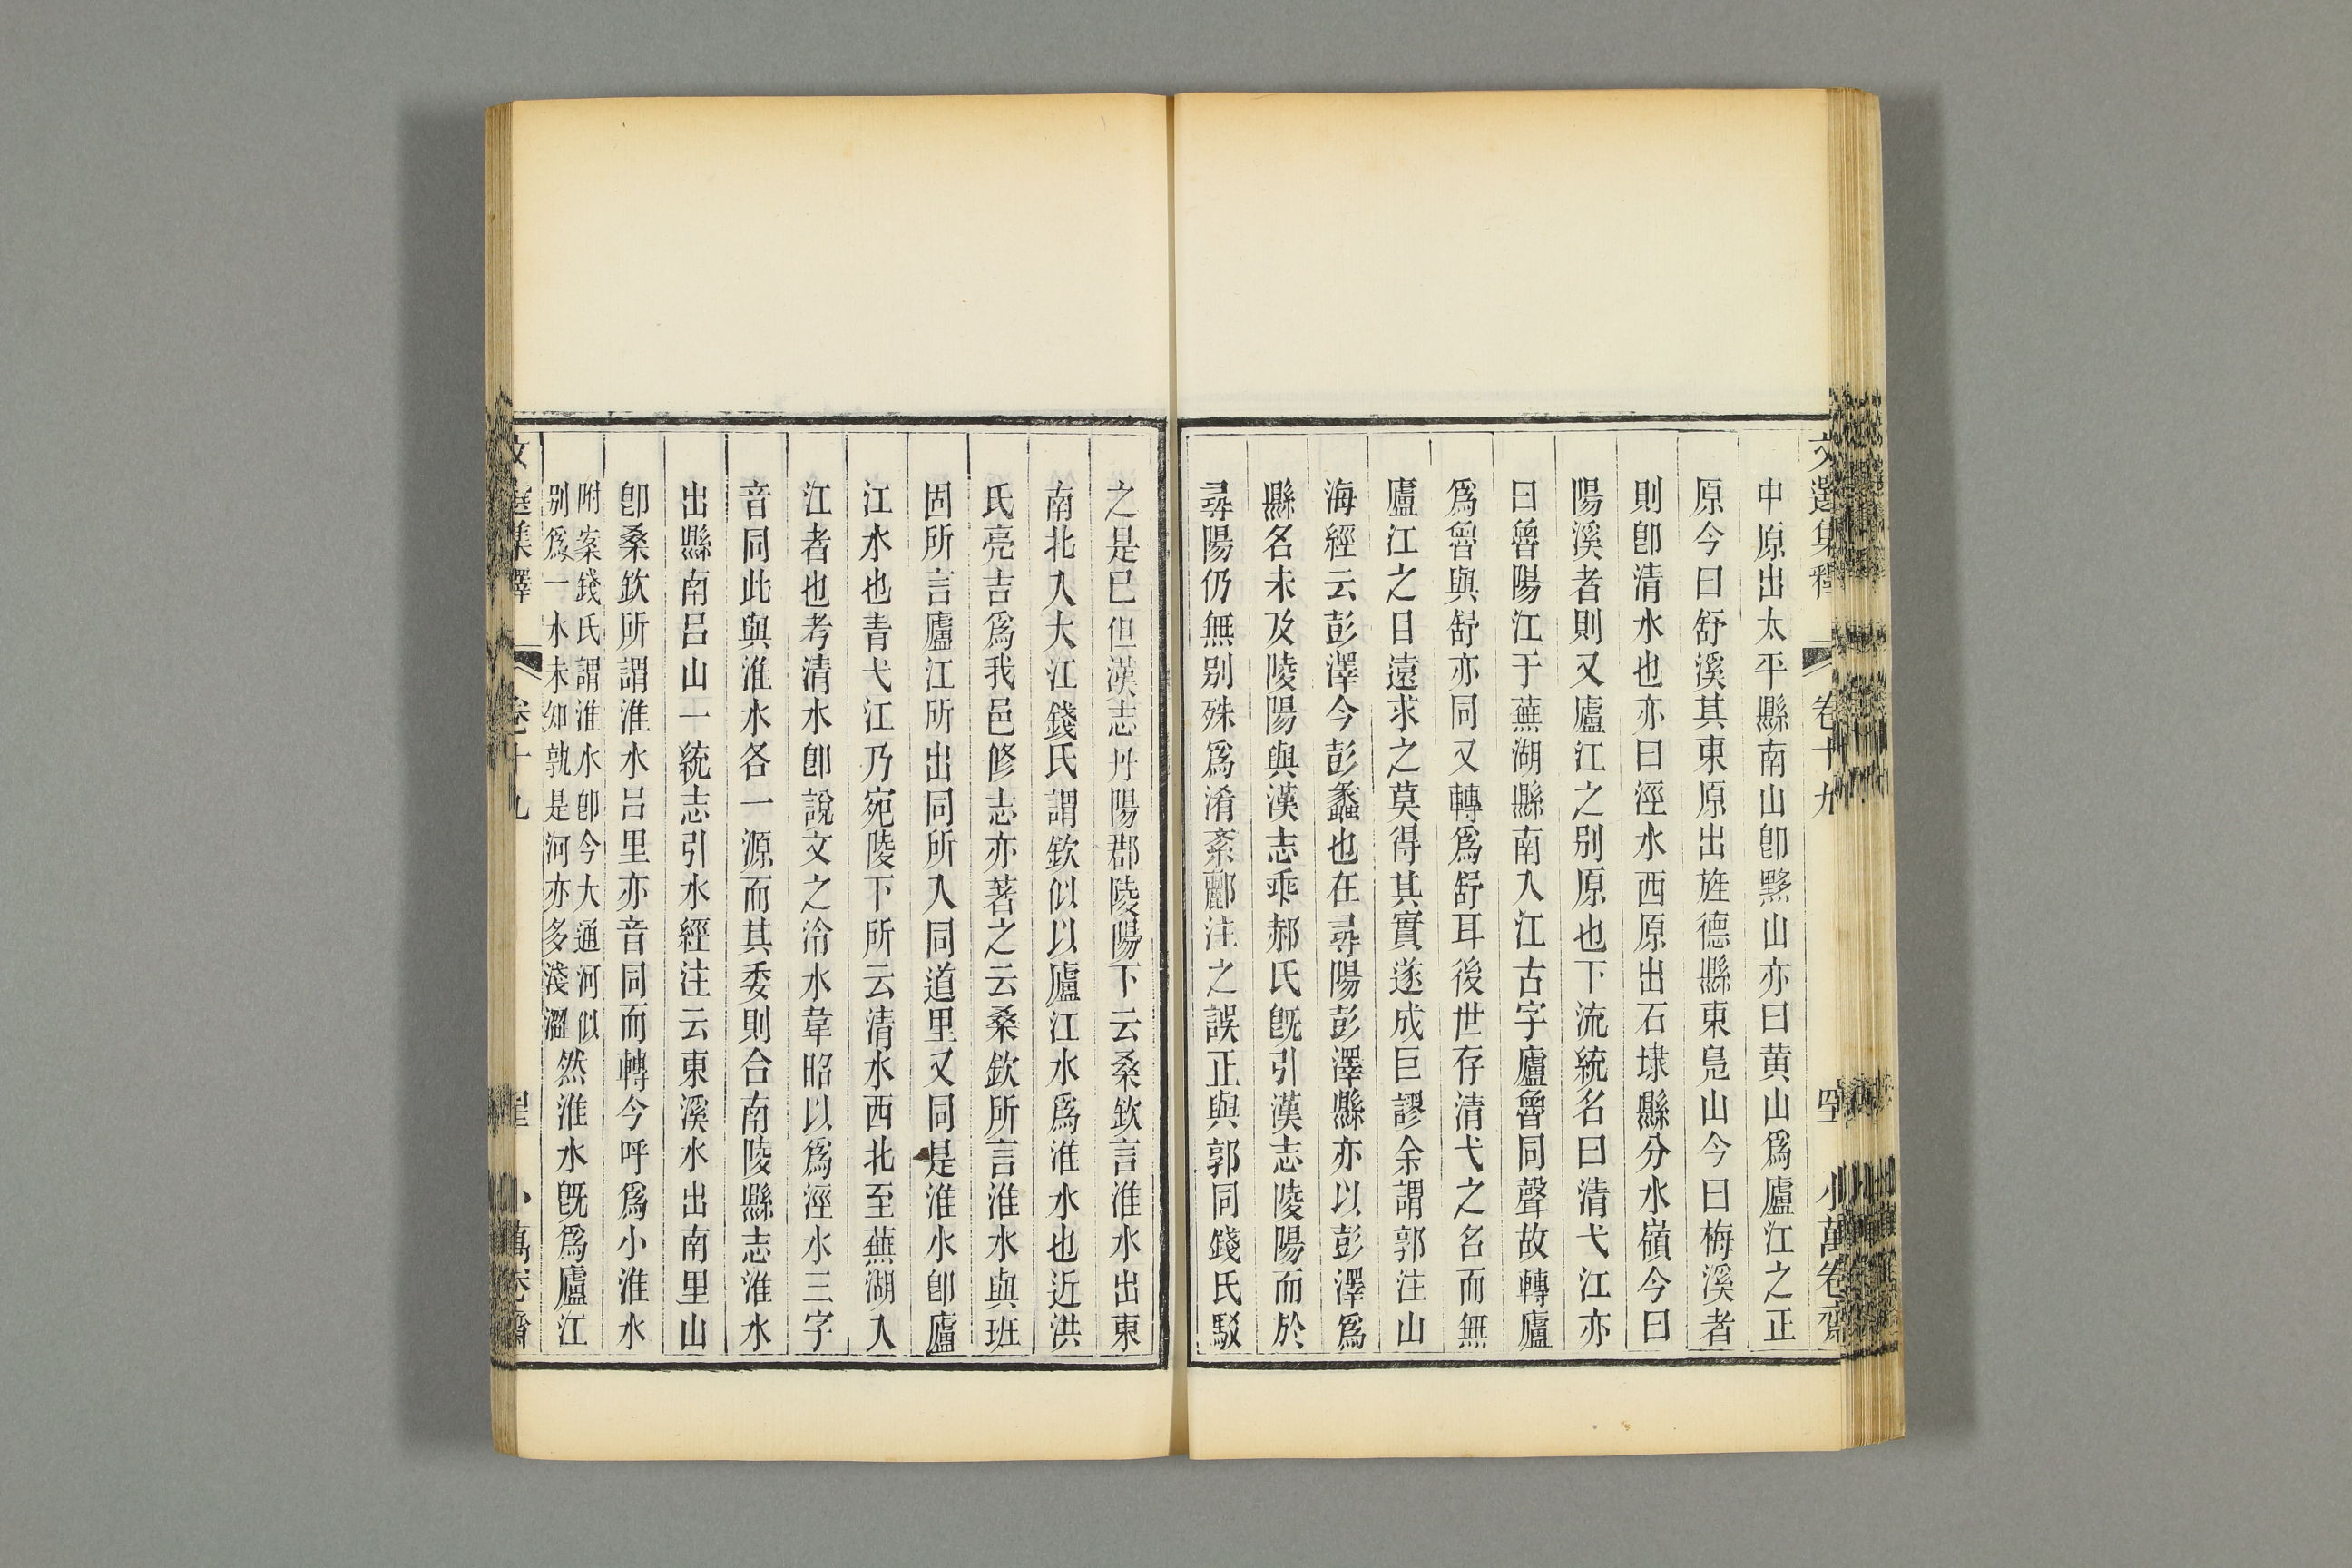 文選集釋 卷十九 小萬卷齋
中原出太平縣南山卽黟山亦曰黃山爲廬江之正
原今曰舒溪其東原出旌德縣東鳧山今曰梅溪者
則卽清水也亦曰涇水西原出石埭縣分水嶺今曰
陽溪者則又廬江之别原也下流統名曰清弋江亦
曰魯陽江于蕪湖縣南入江古字廬魯同聲故轉廬
爲魯與舒亦同又轉爲舒耳後世存清弋之名而無
廬江之目遠求之莫得其實遂成巨謬余謂郭注山
海經云彭澤今彭蠡也在尋陽彭澤縣亦以彭澤爲
縣名未及陵陽與漢志乖郝氏旣引漢志陵陽而於
尋陽仍無别殊爲淆紊酈注之誤正與郭同錢氏駁
之是已但漢志丹陽郡陵陽下云桑欽言淮水出東
南北入大江錢氏謂欽似以廬江水爲淮水也近洪
氏亮吉爲我邑修志亦著之云桑欽所言淮水與班
固所言廬江所出同所入同道里又同是淮水卽廬
江水也青弋江乃宛陵下所云清水西北至蕪湖入
江者也考清水卽說文之泠水韋昭以爲涇水三字
音同此與淮水各一源而其委則合南陵縣志淮水
出縣南呂山一統志引水經注云東溪水出南里山
卽桑欽所謂淮水呂里亦音同而轉今呼爲小淮水
附案錢氏謂淮水卽今大通河似
别爲一水未知孰是河亦多淺澀
然淮水旣爲廬江
文選集釋 卷十九 小萬卷齋